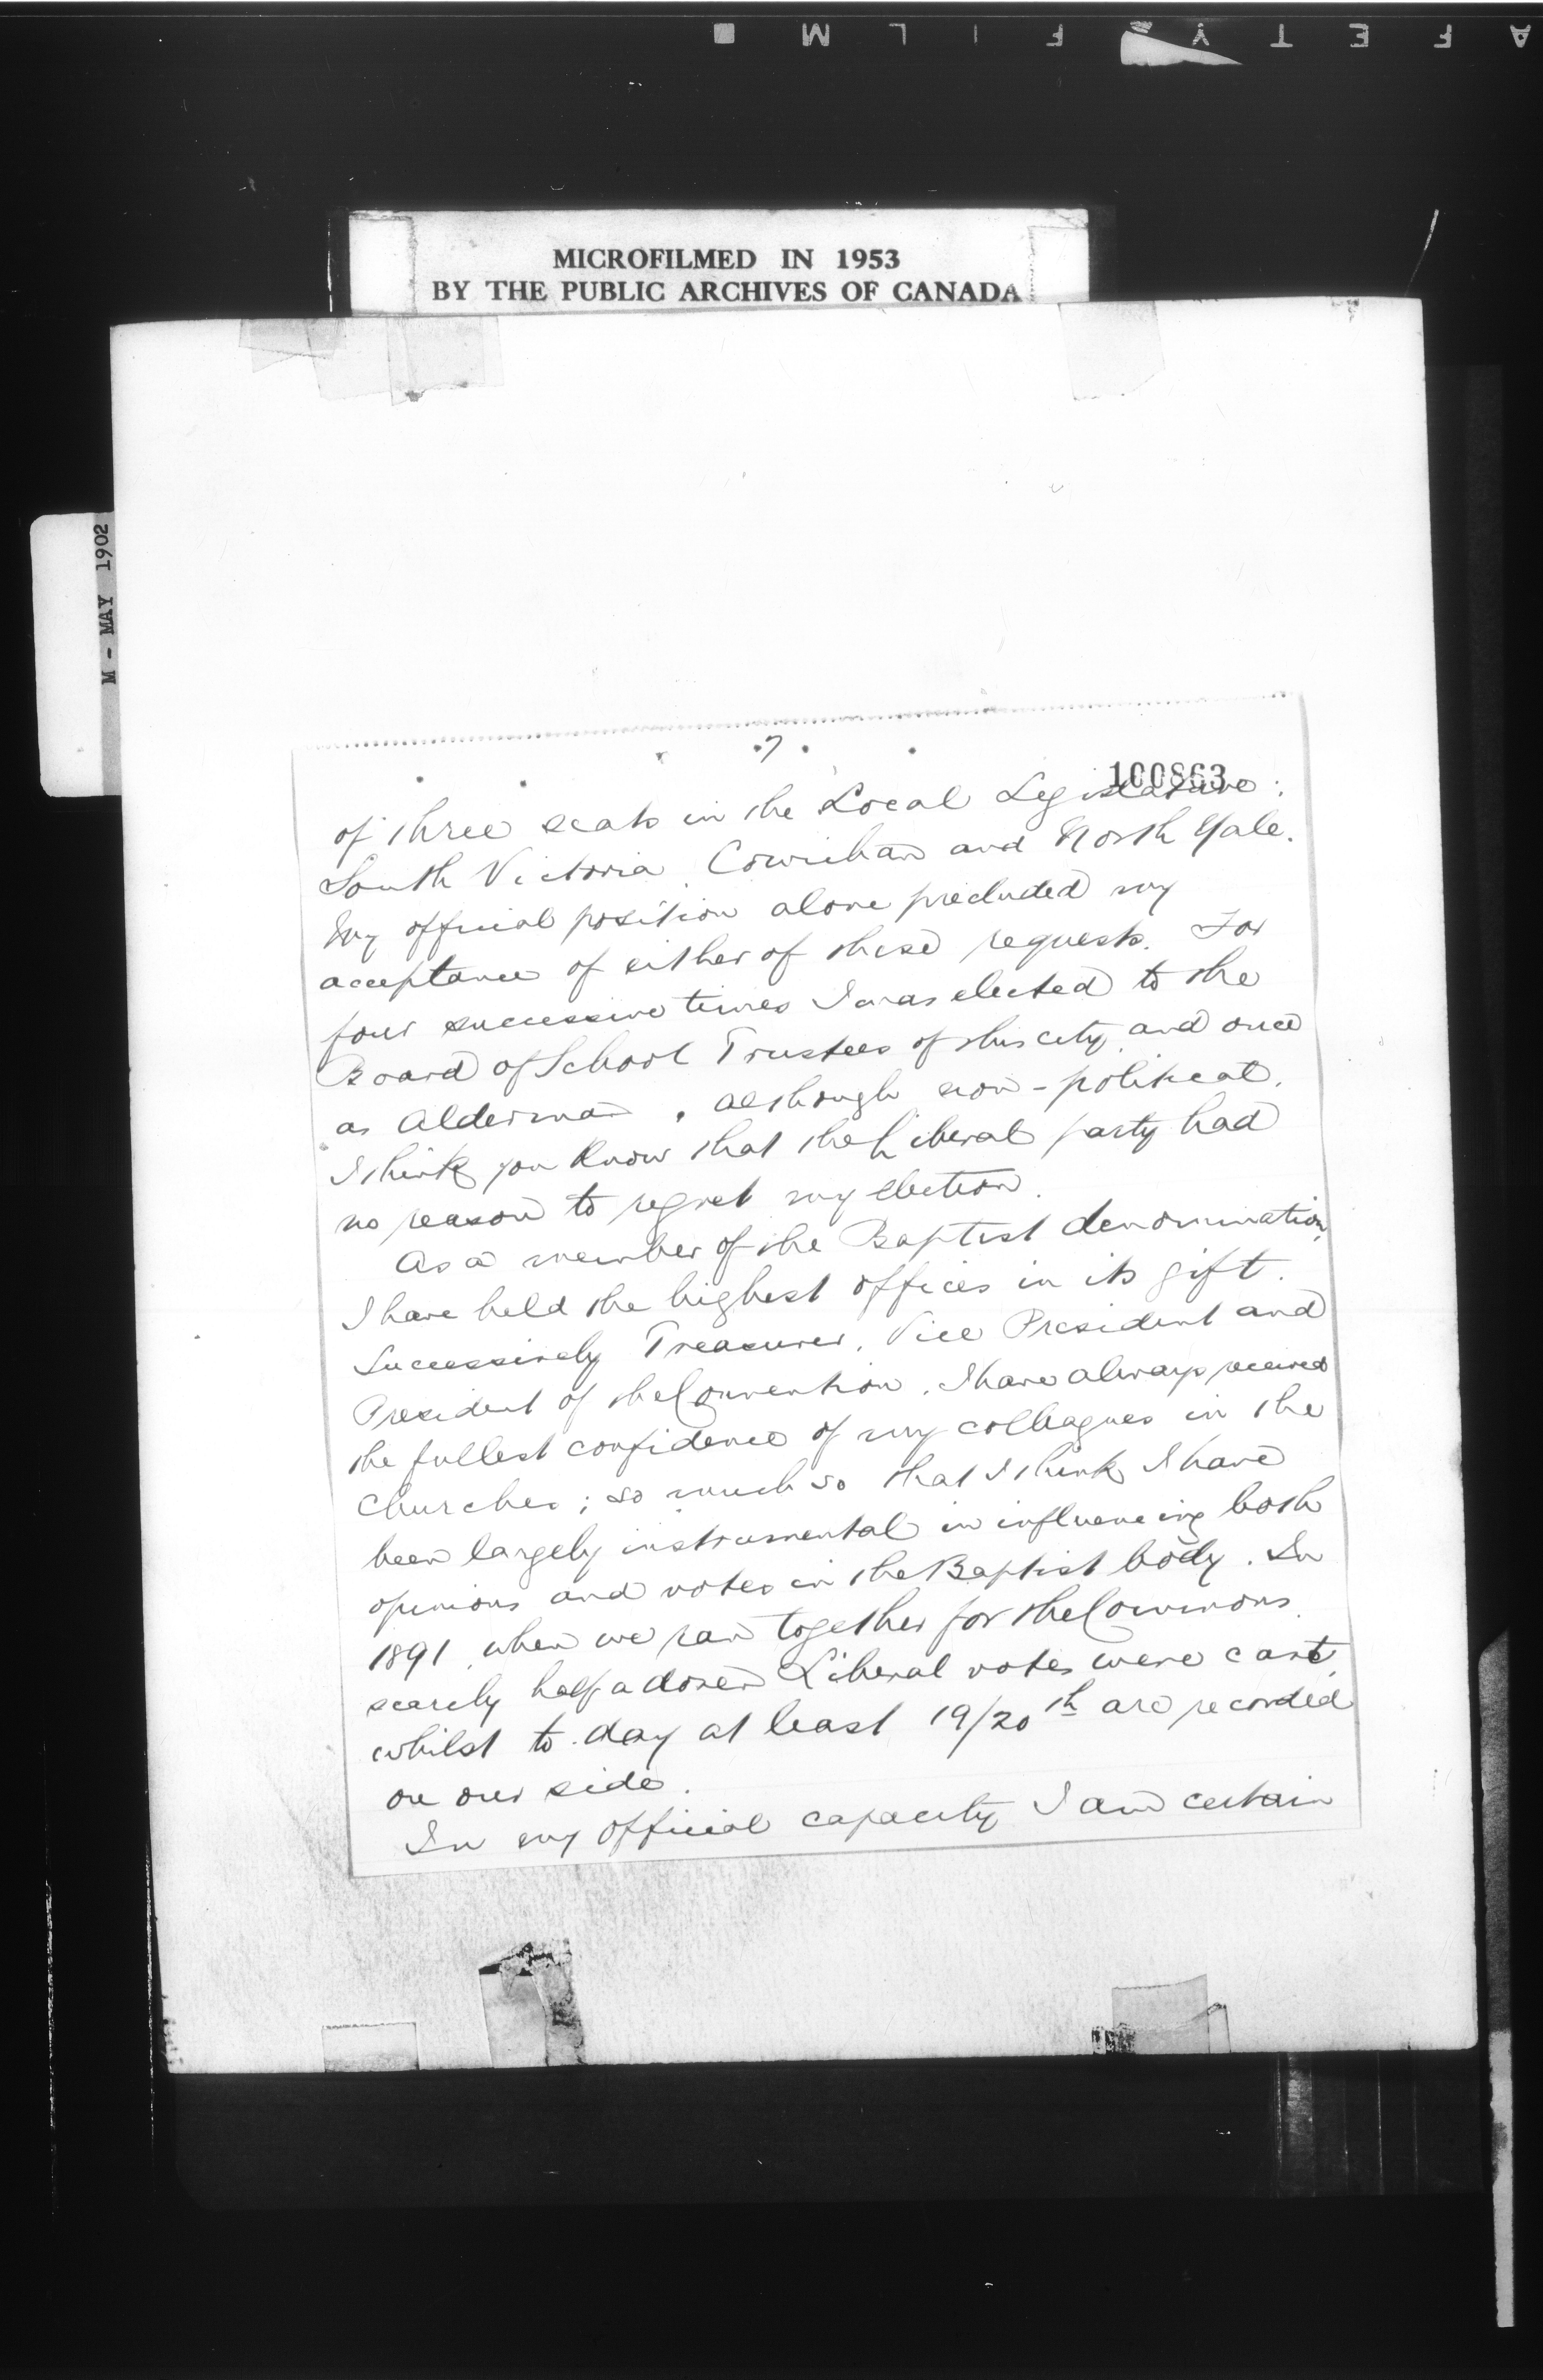 AFETY FILM
MICROFILMED IN 1953
BY THE PUBLIC ARCHIVES OF CANADA
M - MAY 1902
7
100863
of three seats in the Local Legislature:
South Victoria, Cowichan and North Yale.
My official position alone precluded my
acceptance of either of these requests. For
four successive times I was elected to the
Board of School Trustees of this city, and once
as Alderman, although non-political,
I think you know that the Liberal party had
no reason to regret my election.
As a member of the Baptist denomination,
I have held the highest offices in its gift.
Successively Treasurer, Vice President and
President of the Convention, I have always received
the fullest confidence of my colleagues in the
churches; so much so that I think I have
been largely instrumental in influencing both
opinions and votes in the Baptist body. In
1891, when we ran together for the Commons,
scarcly half a dozen Liberal votes were cast,
whilst to-day at least 19/20th are recorded
on our side.
In my official capacity I am certain